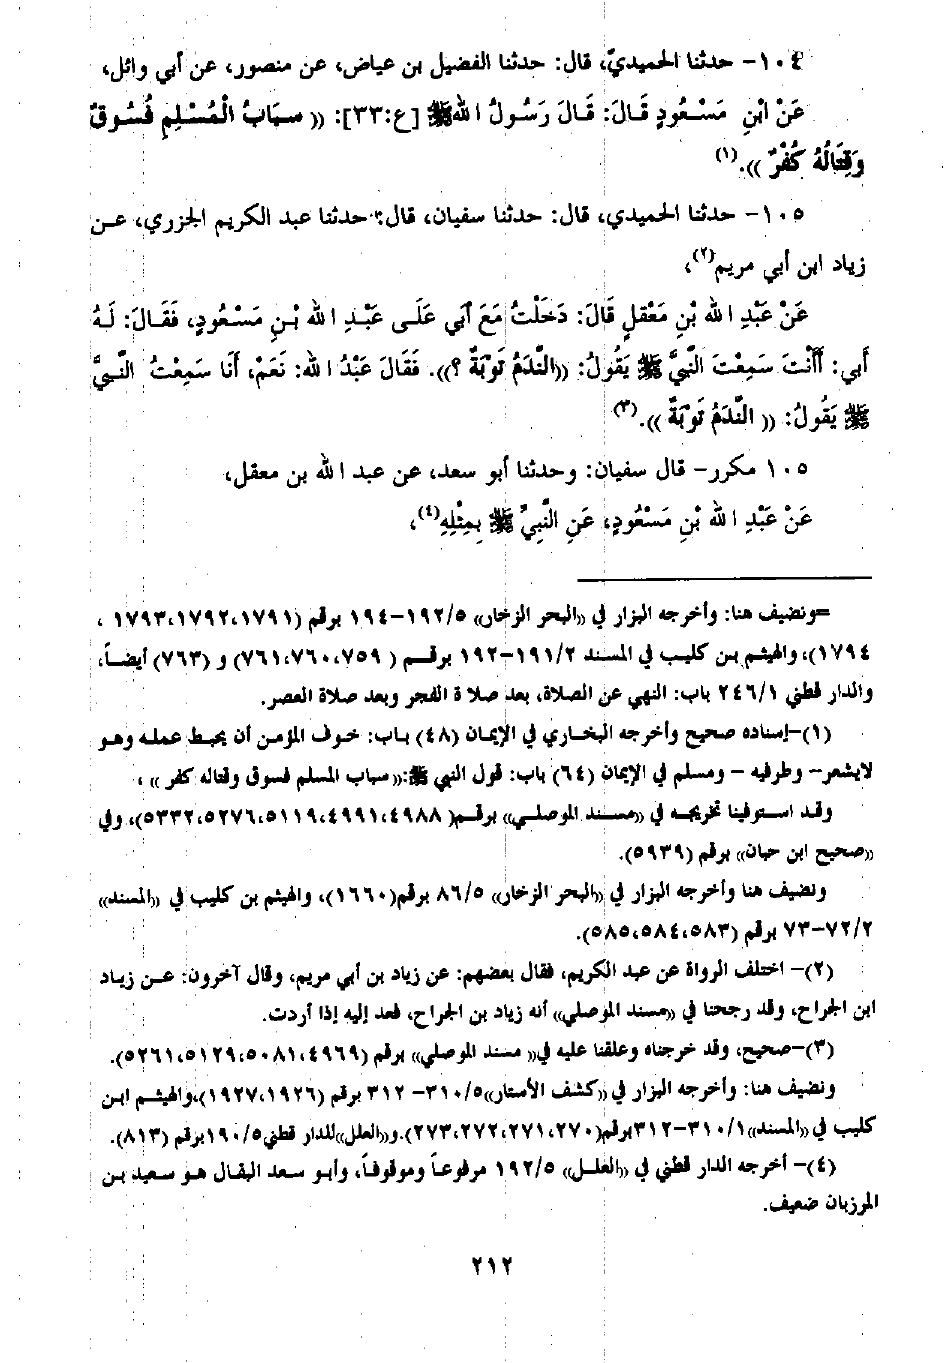 ١٠٤- حدثنا الحميديّ، قال: حدثنا الفضيل بن عياض، عن منصور، عن أبي وائل،
عَنْ ابْنِ مَسْعُودٍ قَالَ: قَالَ رَسُولُ اللهِ ﷺ [ع:٣٣]: (( سبَابُ الْمُسْلِمِ فُسُوقٌ
وَقِتَالُهُ كُفْرٌ )).(١)
١٠٥- حدثنا الحميدي، قال: حدثنا سفيان، قال: حدثنا عبد الكريم الجزري، عن
زياد ابن أبي مريم(٢)،
عَنْ عَبْدِ اللهِ بْنِ مَعْقلٍ قَالَ: دَخَلْتُ مَعَ أَبي عَلَى عَبْدِ اللهِ بْنِ مَسْعُودٍ، فَقَالَ: لَهُ
أَبي: أَأَنْتَ سَمِعْتَ النَّبيَّ ﷺ يَقُولُ: ((النَّدَمُ تَوْبَةٌ ؟)). فَقَالَ عَبْدُ الله: نَعَمْ، أَنَا سَمِعْتُ النَّبيَّ
ﷺ يَقُولُ: (( النَّدَمُ تَوبَةٌ )).(٣)
١٠٥ مكرر- قال سفيان: وحدثنا أبو سعد، عن عبد الله بن معقل،
عَنْ عَبْدِ اللهِ بْنِ مَسْعُودٍ، عَنِ النَّبِيِّ ﷺ بِمِثْلِهِ(٤)،
=ونضيف هنا: وأخرجه البزار في ((البحر الزخار)) ١٩٢/٥-١٩٤ برقم (١٧٩١،١٧٩٢،١٧٩٣ ،
١٧٩٤)، والهيثم بن كليب في المسند ١٩١/٢-١٩٢ برقم ( ٧٥٩،٧٦٠،٧٦١) و (٧٦٣) أيضاً،
والدار قطني ٢٤٦/١ باب: النهي عن الصلاة، بعد صلاة الفجر وبعد صلاة العصر.
(١)-إسناده صحيح وأخرجه البخاري في الإيمان (٤٨) باب: خوف المؤمن أن يحبط عمله وهو
لايشعر- وطرفيه - ومسلم في الإيمان (٦٤) باب: قول النبي ﷺ:(( سباب المسلم فسوق وقتاله كفر )) ،
وقد استوفينا تخريجه في ((مسند الموصلي)) برقم( ٤٩٨٨،٤٩٩١،٥١١٩،٥٢٧٦،٥٣٣٢)، وفي
((صحيح ابن حبان)) برقم (٥٩٣٩).
ونضيف هنا وأخرجه البزار في ((البحر الزخار)) ٨٦/٥ برقم(١٦٦٠)، والهيثم بن كليب في ((المسند))
٧٢/٢-٧٣ برقم (٥٨٣،٥٨٤،٥٨٥).
(٢)- اختلف الرواة عن عبد الكريم، فقال بعضهم: عن زياد بن أبي مريم، وقال آخرون: عن زياد
ابن الجراح، وقد رجحنا في ((مسند الموصلي)) أنه زياد بن الجراح، فعد إليه إذا أردت.
(٣)-صحيح، وقد خرجناه وعلقنا عليه في(( مسند الموصلي)) برقم (٤٩٦٩،٥٠٨١،٥١٢٩،٥٢٦١).
ونضيف هنا: وأخرجه البزار في ((كشف الأستار))٣١٠/٥- ٣١٢ برقم (١٩٢٦،١٩٢٧)،والهيثم ابن
كليب في ((المسند))٣١٠/١-٣١٢برقم(٢٧٠،٢٧١،٢٧٢،٢٧٣).و((العلل))للدار قطني١٩٠/٥برقم (٨١٣).
(٤)- أخرجه الدار قطني في ((العلل)) ١٩٢/٥ مرفوعاً وموقوفاً، وأبو سعد البقال هو سعيد بن
المرزبان ضعيف.
٢١٢